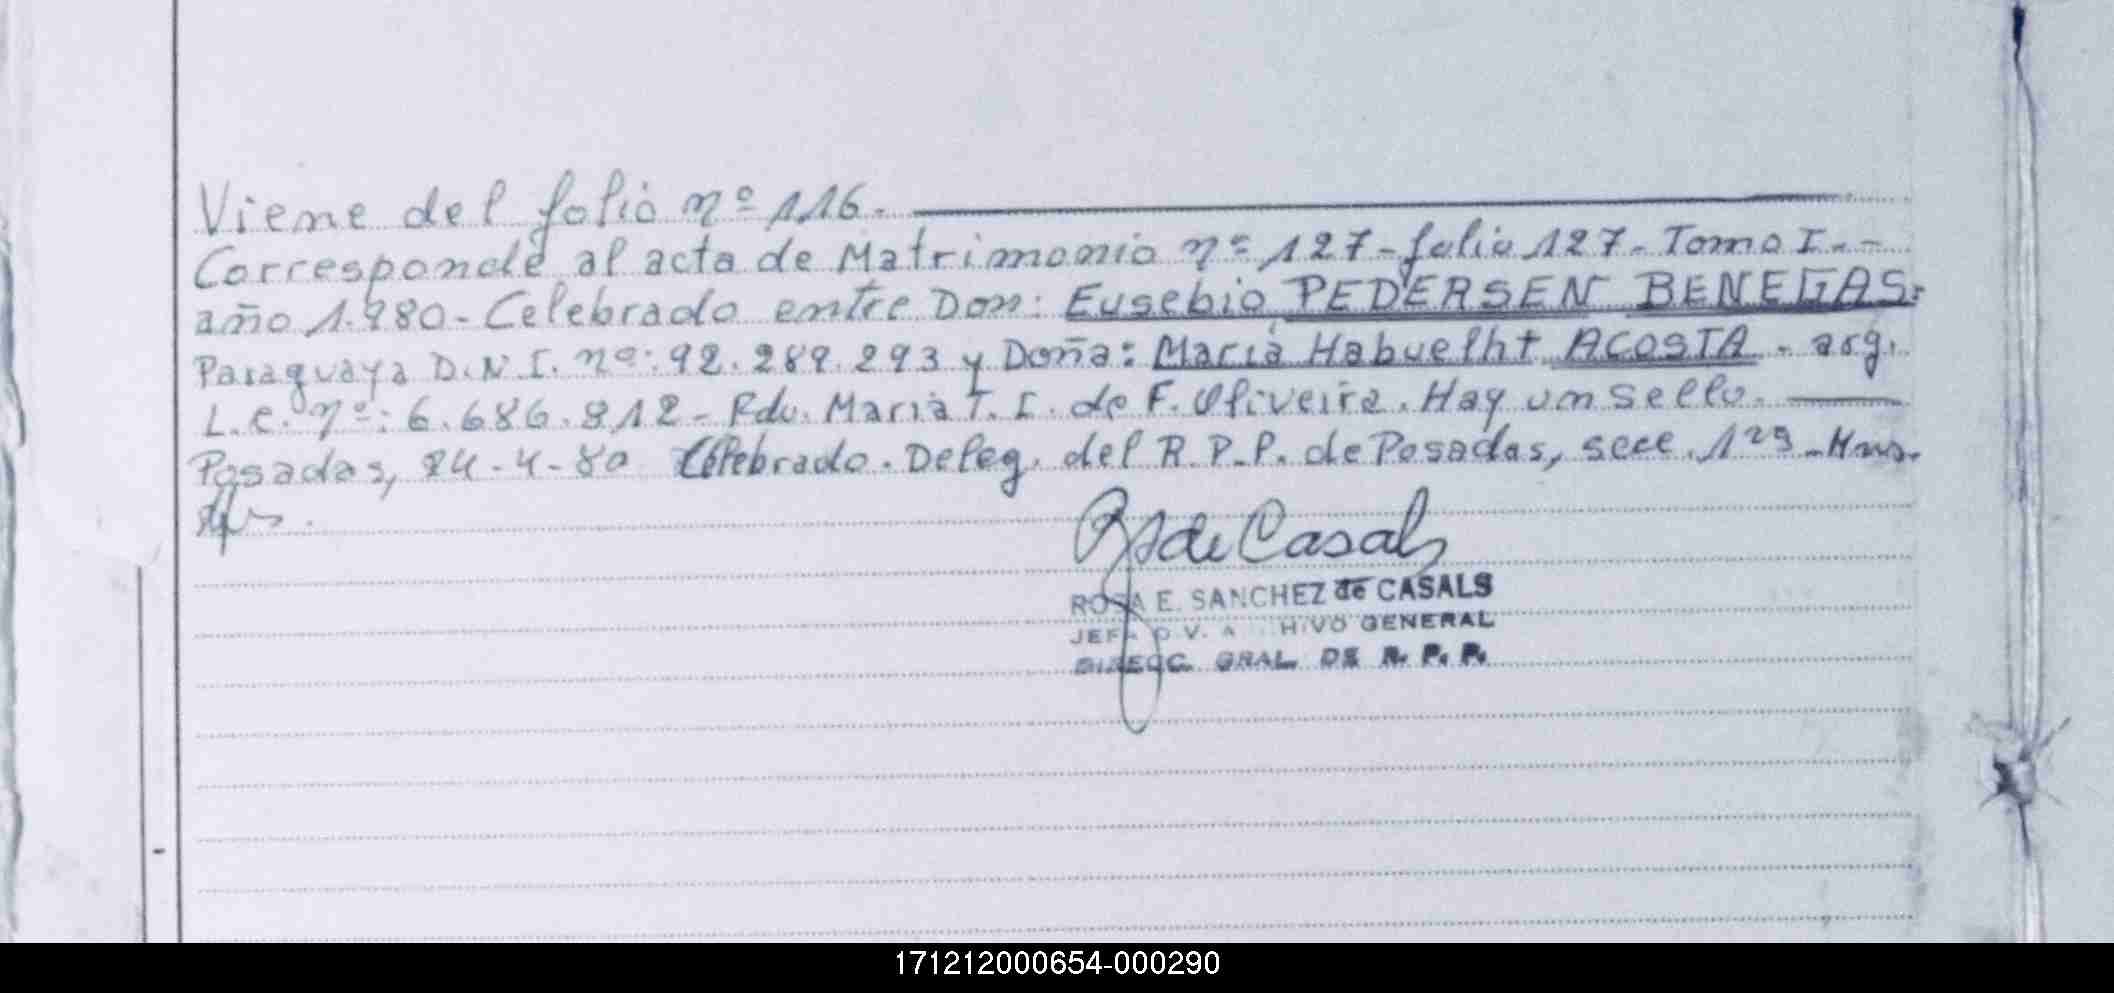 Viene del folio nº 116.
Corresponde al acta de Matrimonio nº 127 - folio 127 - Tomo I. -
año 1.980 - Celebrado entre Don: Eusebio PEDERSEN BENEGAS.
Paraguaya D.N.I. nº: 92.289.293 y Doña: Maria Habuelht ACOSTA - arg.
L.C. nº: 6.686.912 - Fdo. Maria T. I. de F. Oliveira. Hay un sello.
Posadas, 24-4-80 Celebrado. Deleg. del R.P.P. de Posadas, secc. 1ª
R S de Casals
ROSA E. SANCHEZ de CASALS
GENERAL
DIRECC. GRAL. DE R. P. P.
171212000654-000290